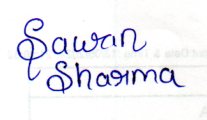 Sawan
Sharma